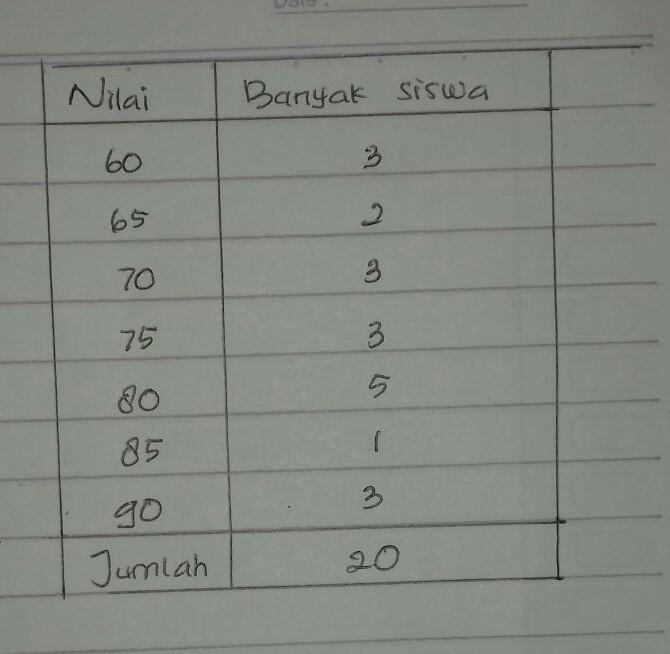 Date:
Nilai Banyak siswa
60 3
65 2
70 3
75 3
80 5
85 1
90 3
Jumlah 20